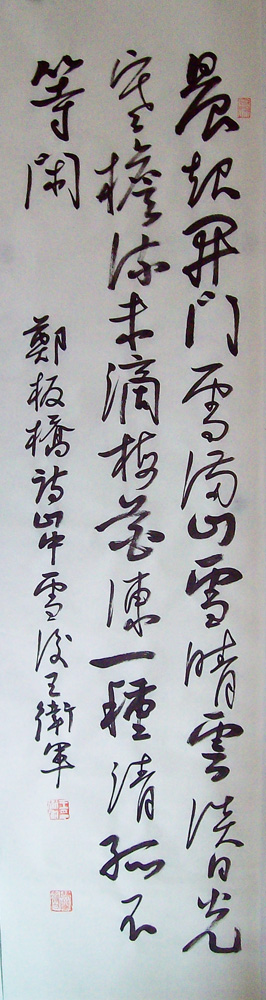 晨起開門雪滿山雪晴雲淡日光
寒檐流未滴梅花凍一種清孤不
等閑
鄭板橋詩山中雪後王衛軍